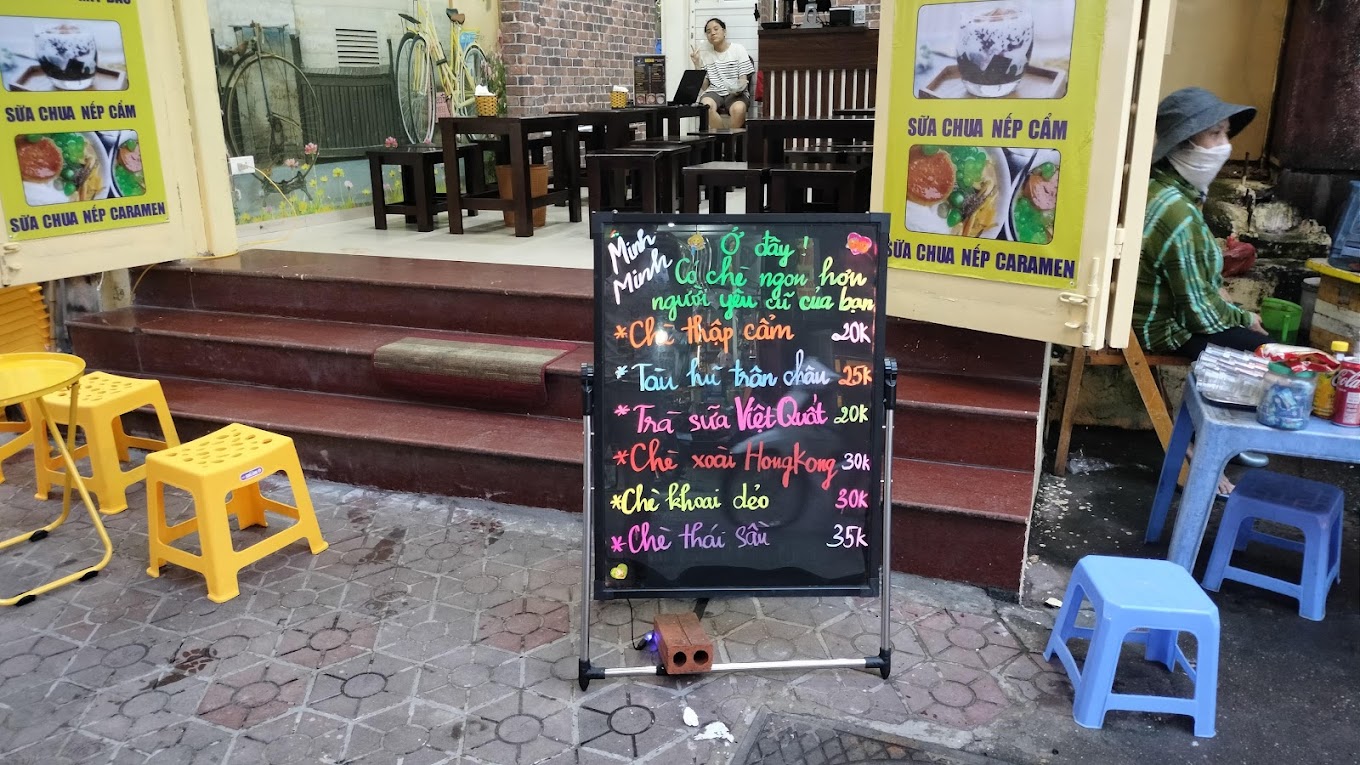 SỮA CHUA NẾP CẨM
SỮA CHUA NẾP CARAMEN
SỮA CHUA NẾP CẨM
SỮA CHUA NẾP CARAMEN
Minh Minh
Ở đây !
Có chè ngon hơn
người yêu cũ của bạn
*Chè thập cẩm 20k
*Tàu hũ trân châu 25k
*Trà sữa Việt Quất 20k
*Chè xoài HongKong 30k
*Chè khoai dẻo 30k
*Chè thái sầu 35k